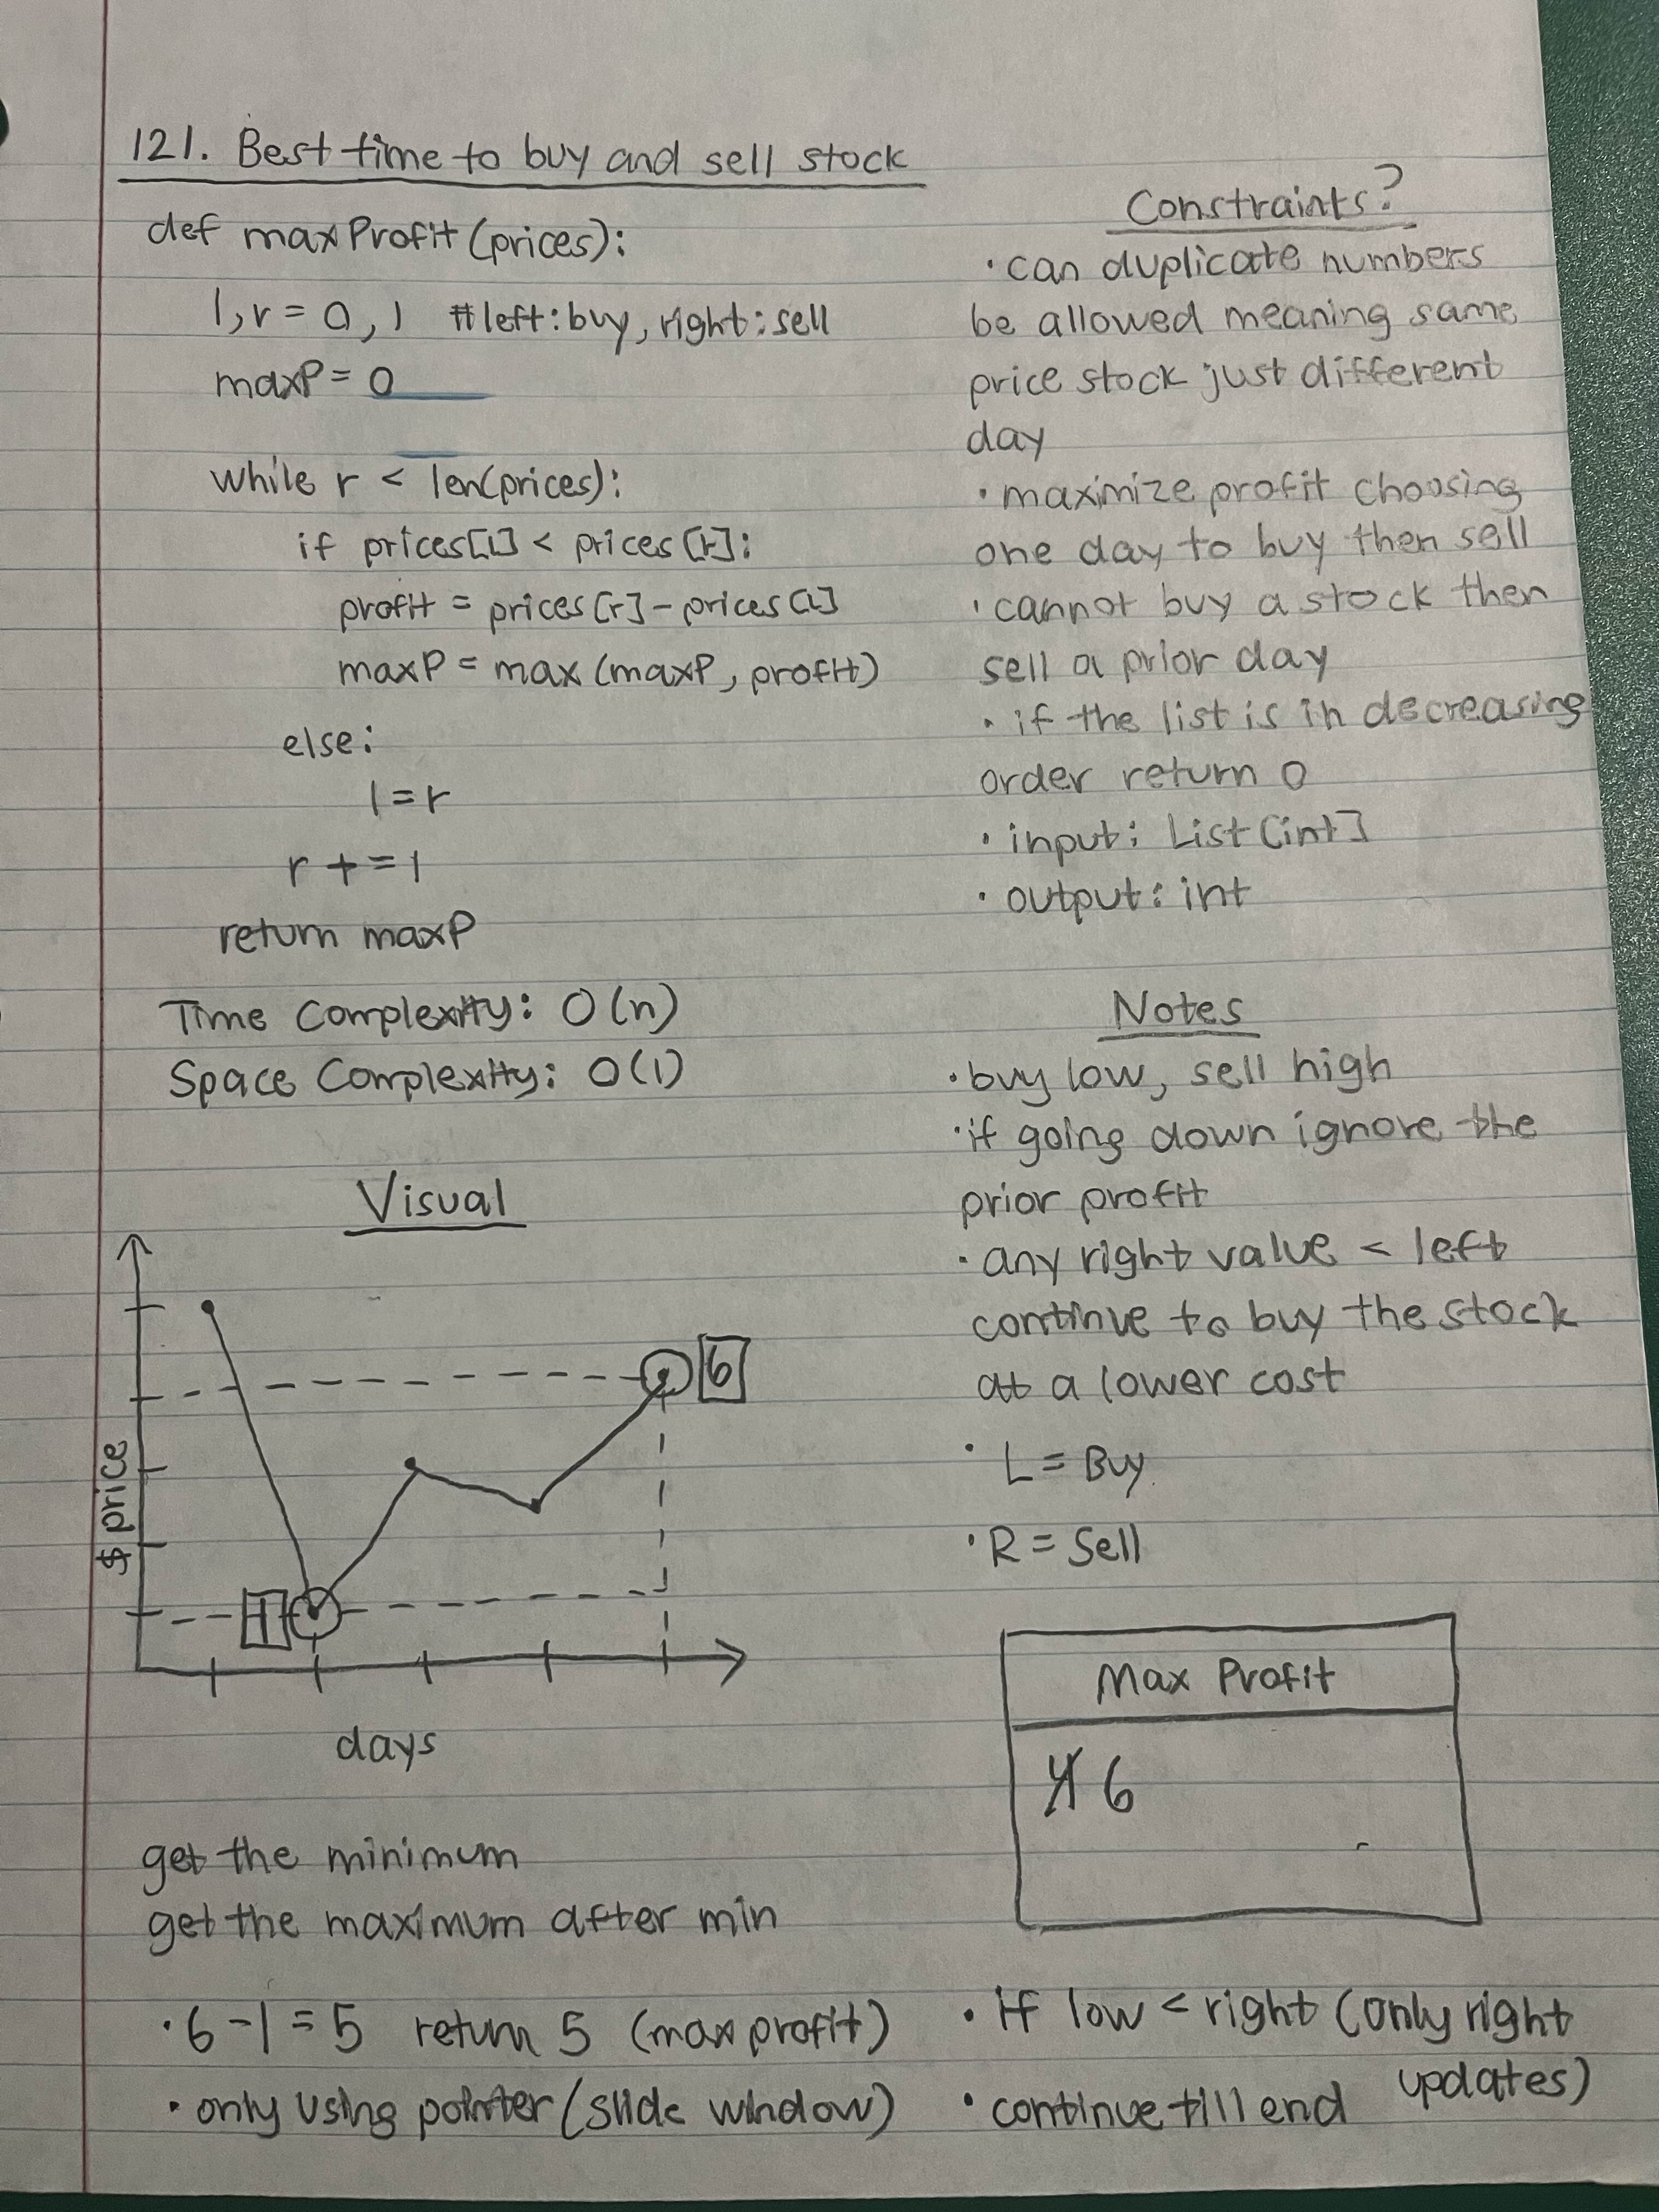 121. Best time to buy and sell stock
def maxProfit(prices):
l,r = 0, 1 #left:buy, right:sell
maxP = 0
while r < len(prices):
if prices[l] < prices[r]:
profit = prices[r] - prices[l]
maxP = max(maxP, profit)
else:
l = r
r += 1
return maxP
Time Complexity: O(n)
Space Complexity: O(1)
Constraints?
• can duplicate numbers
be allowed meaning same
price stock just different
day
• maximize profit choosing
one day to buy then sell
• cannot buy a stock then
sell a prior day
• if the list is in decreasing
order return 0
• input: List[int]
• output: int
Notes
• buy low, sell high
• if going down ignore the
prior profit
• any right value < left
continue to buy the stock
at a lower cost
• L = Buy
• R = Sell
Visual
$ price
6
1
days
Max Profit
4 6
get the minimum
get the maximum after min
• 6-1 = 5 return 5 (max profit)
• only using pointer (slide window)
• if low < right (only right
updates)
• continue till end